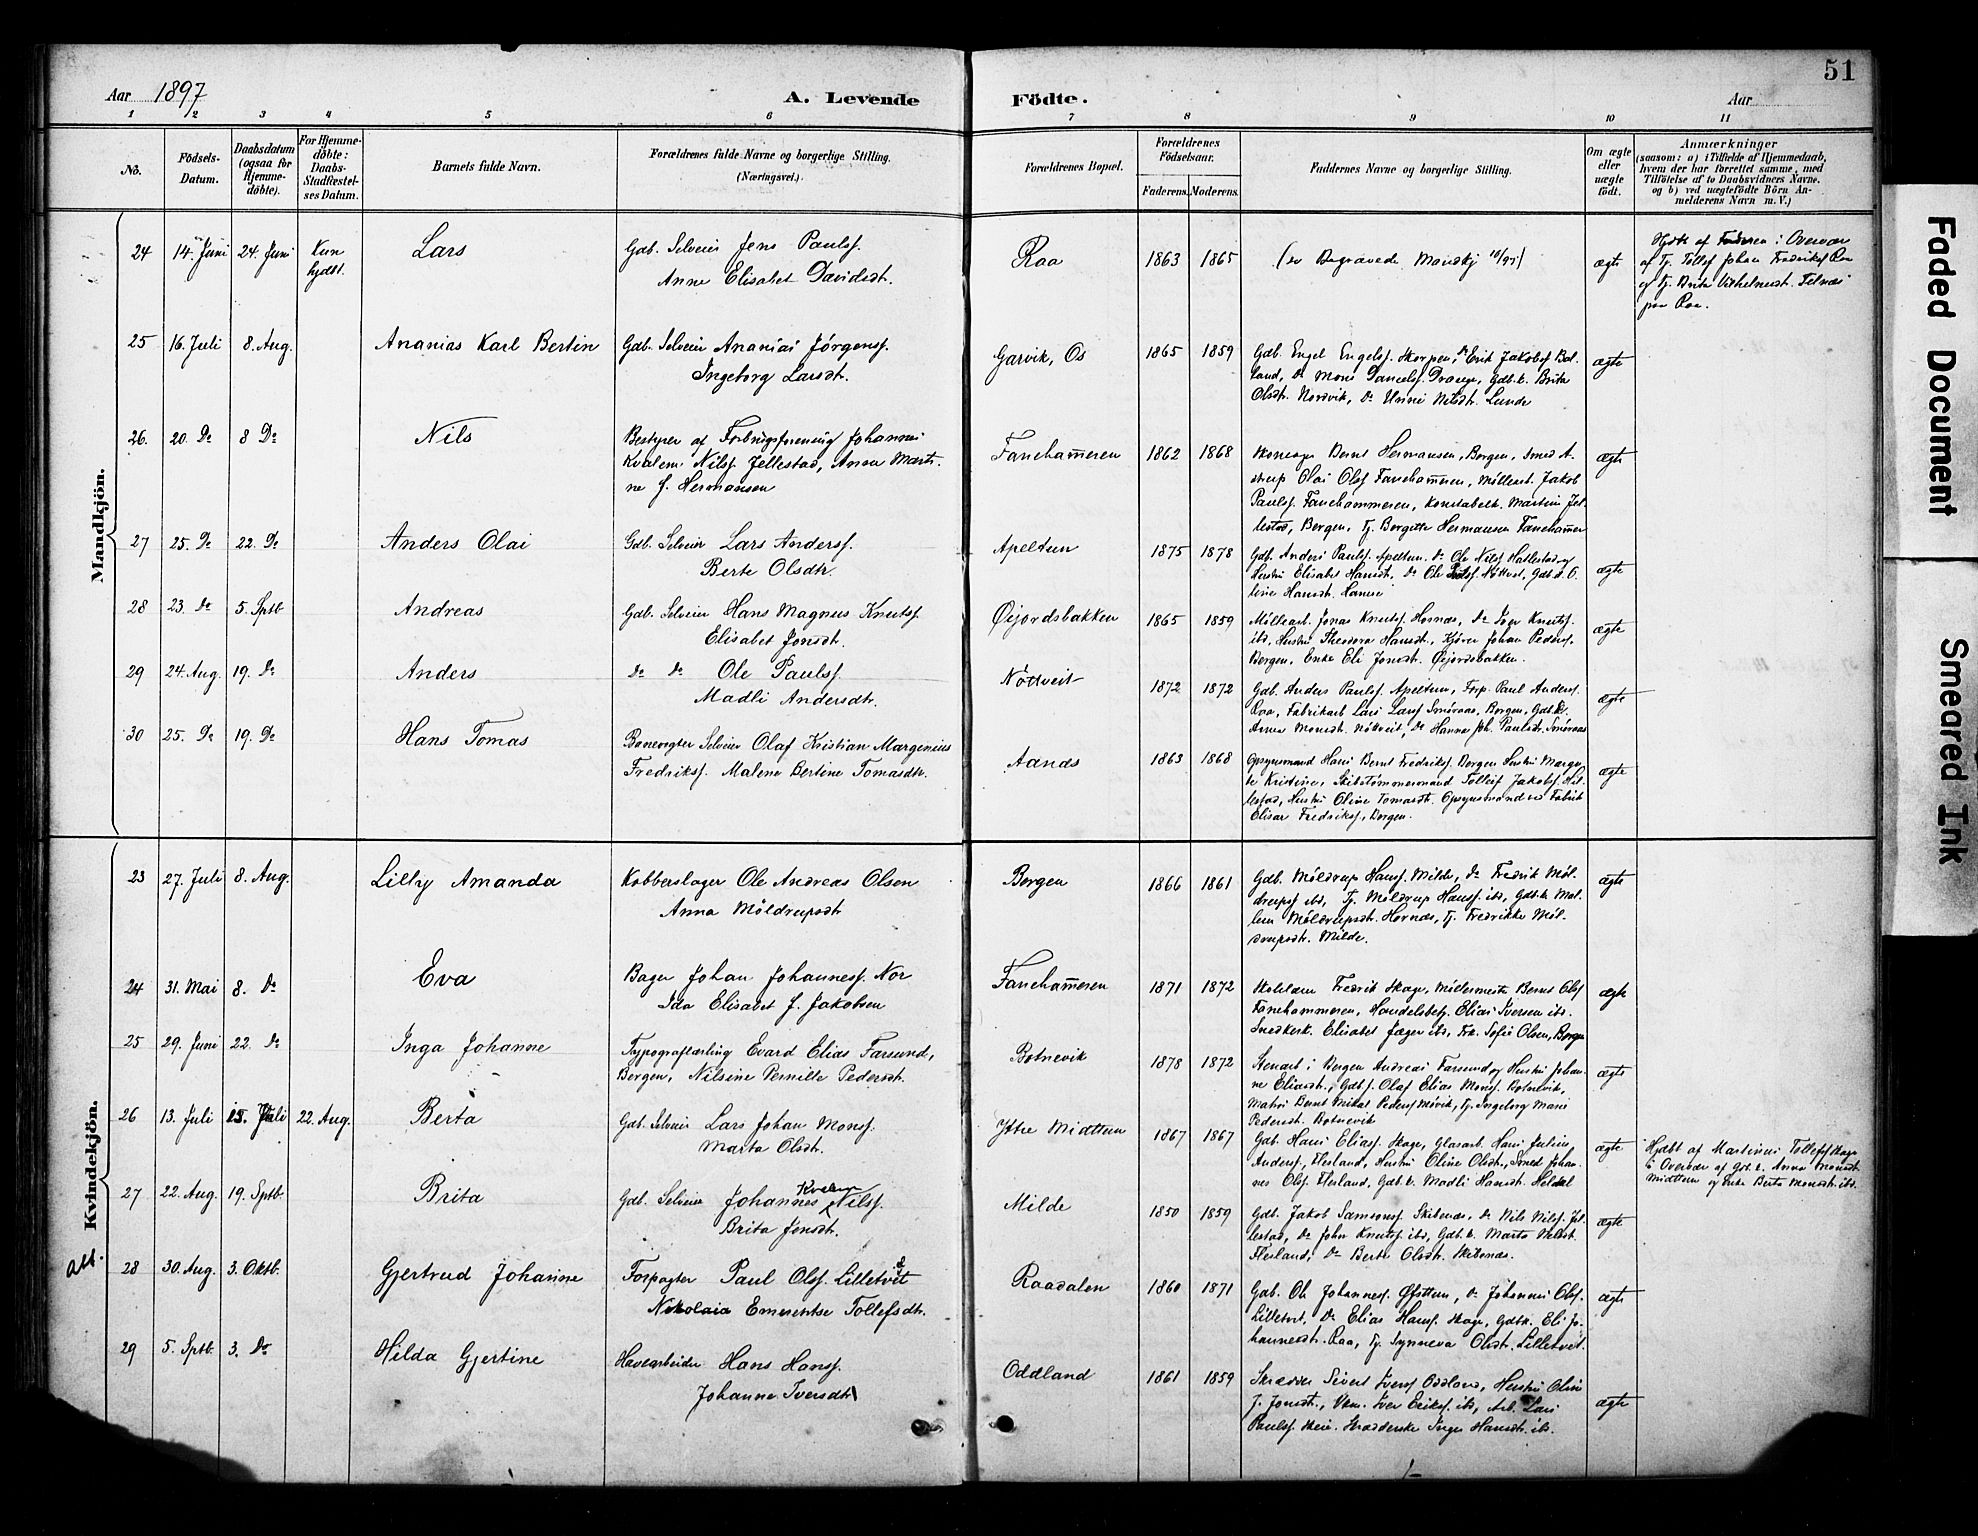 51
Aar 1897
A. Levende
Födte.
Aar
1 2 3 4 5 6 7 8 9 10 11
No.
Födsels-Datum.
Daabsdatum (ogsaa for Hjemme-döbte).
For Hjemme-döbte: Daabs-Stadfæstel-ses Datum.
Barnets fulde Navn.
Forældrenes fulde Navne og borgerlige Stilling. (Næringsvei.)
Forældrenes Bopæl.
Forældrenes Födselsaar.
Faderens. Moderens.
Faddernes Navne og borgerlige Stilling.
Om ægte eller uægte födt.
Anmærkninger
(saasom: a) i Tilfælde af Hjemmedaab, hvem der har forrettet samme, med Tilföielse af to Daabsvidners Navne, og b) ved uægtefödte Börn An-melderens Navn m. V.)
Mandkjön.
24 14. Juni 24. Juni Kun hjdbt. Lars
Gdb. Selveier Jens Paulsf.
Anne Elisabet Davidsdt.
Raa 1863 1865 ægte
af Tj. Tollef Johan Fredriksf Raa
paa Raa.
25 16. Juli 8. Aug. Ananias Karl Bertin
Gdb. Selveier Ananias Jörgensf.
Ingeborg Larsdt.
Garvik, Os 1865 1859
Gdb. Engel Engelsf. Skorpen, Do Erik Jakobsf Bal-
land, Do Mons Danielsf. Drange, Gdbk. Brita
Olsdt. Nordvik, Do Unni Nilsdt. Lunde
ægte
26. 20. Do 8 Do Nils
Bestyrer af Forbrugsforening Johannes
Kvalem Nilsf. Jellestad, Anna Marti-
ne f. Hermansen
Fanehammeren 1862 1868
Bernt Hermansen, Bergen, Smed A-
Olai Olsf Fanehammeren, Möllearb. Jakob
Paulsf. Fanehammeren, Konstabelk. Martine Jel-
lestad, Bergen, Tj. Bergitte Hermansen Fanehammer
ægte
27 25. Do 22. Do Anders Olai
Gdb. Selveier Lars Andersf.
Berte Olsdtr.
Apeltun 1875 1878
Gdb. Anders Paulsf. Apeltun, Do Ole Nilsf Hatlestad og
Hustru Elisabet Hansdt., Do Ole Paulsf. Nöttveit, Gdbd. O-
line Hansdt.
ægte
28 23. Do 5. Sptb Andreas
Gdb. Selveier Hans Magnus Knutsf.
Elisabet Jonsdt.
Öejordsbakken 1865 1859
Möllearb. Jonas Knutsf. Hornæs, Do Iver Knutsf.
ibd, Hustru Theodora Hansdt., Kjörer Johan Pedersf.
Bergen, Enke Eli Jonsdt. Öejordsbakken.
ægte
29 24. Aug. 19. Do Anders
Do Do Ole Paulsf.
Madli Andersdtr.
Nöttveit 1872 1872
Gdb. Anders Paulsf. Apeltun, Forp. Paul Andersf.
Raa, Fabrikarb Lars Larsf Smöraas, Bergen, Gdbk.
Anna Monsdt. Nöttveit, Do Hanna Joh. Paulsdt. Smöraas
ægte
30 25. Do 19. Do Hans Tomas
Banevogter Selveier Olaf Kristian Margenius
Fredriksf. Malene Bertine Tomasdtr.
Aanæs 1863 1868
Opsynsmand Hans Bernt Fredriksf. Bergen Hustru Margre-
te Kristine, Skibstömmermand Tolleif Jakobsf. Hil-
lestad, Hustru Oline Tomasdt. Opsynsmand ved Fabrik
Elisar Fredriksf, Bergen.
ægte
Kvindekjön.
23 27. Juli 8. Aug. Lilly Amanda
Kobberslager Ole Andreas Olsen
Anna Möldrupsdt
Bergen 1866 1861
Gdb. Möldrup Hansf. Milde, Do Fredrik Möl-
drupsf ibd, Tj. Möldrup Hansf. ibd, Gdbk Mal-
lena Möldrupsdt. Hornæs, Tj. Fredrikke Möl-
drupsdt. Milde.
ægte
24 31. Mai 8. Do Eva
Bager Johan Johannesf. Nor
Ida Elisabet f. Jakobsen
Fanehammeren 1871 1872
Fredrik Skage, Möllermester Bernt Olsf
Fanehammeren, Handelsbetj. Elias Iversen ibd.
Snedkerk. Elisabet Jæger ibd, Frk. Sofie Olsen, Bergen
ægte
25 29. Juni 22. Do Inga Johanne
Typograflærling Evard Elias Farsund,
Bergen, Nilsine Pernille Pedersdt.
Botnevik 1878 1872
Stenarb i Bergen Andreas Farsund og Hustru Johan-
ne Eliasdt., Gdbf. Olaf Elias Monsf. Botnevik,
Matros Bernt Mikal Pedersf Movik, Tj. Ingeborg Marie
Pedersdt. Botnevik
ægte
26 13. Juli 15. Juli 22. Aug. Berta
Gdb. Selveier Lars Johan Monsf.
Marta Olsdt.
Ytre Midttun 1867 1867
Gdb. Hans Eliasf. Skage, Glasarb. Hans Julius
Andersf., Flesland, Hustru Oline Olsdt., Smed Johan-
nes Olsf. Flesland, Gdbk. Madli Hansdt. Heldal
ægte
Hjdbt af Martinus Tollefsf Skage
i Overvær af Gdbk. Anna Monsdt.
Midttun og Enke Berta Monsdt. ibd.
27 22. Aug. 19. Sptb. Brita
Gdb. Selveier Johannes Kvalem Nilsf.
Brita Jonsdt.
Milde 1850 1859
Gdb. Jakob Samsonsf. Skibenæs, Do Nils Nilsf. Jel-
lestad, Do John Knutsf. ibd, Gdbk. Marta Nilsdt.
Flesland, Do Berta Olsdt. Skibenæs.
ægte
att.
28 30. Aug. 3. Oktb. Gjertrud Johanne
Forpagter Paul Olsf. Lilletvet
Nikolaia Emerentse Tollefsdtr.
Raadalen 1860 1871
Gdb. Ole Johannesf. Öfsttun, Do Johannes Olsf.
Lilletvet, Do Elias Hansf. Skage, Gdbk. Eli Jo-
hannesdt. Raa, Tj. Synneva Olsdt. Lilletvet.
ægte
29 5. Sptb 3. Do Hilda Gjertine
Havearbeider Hans Hansf.
Johanne Iversdt
Oddland 1861 1859
Skrædder Sivert Iversf Oddland, Hustru Oline
J. Jonsdt., Ukm. Iver Eriksf. ibd, Arb. Lars
Paulsf. Skeie. Skrædderske Inger Hansdt. ibd.
ægte
Faded Document
Smeared Ink